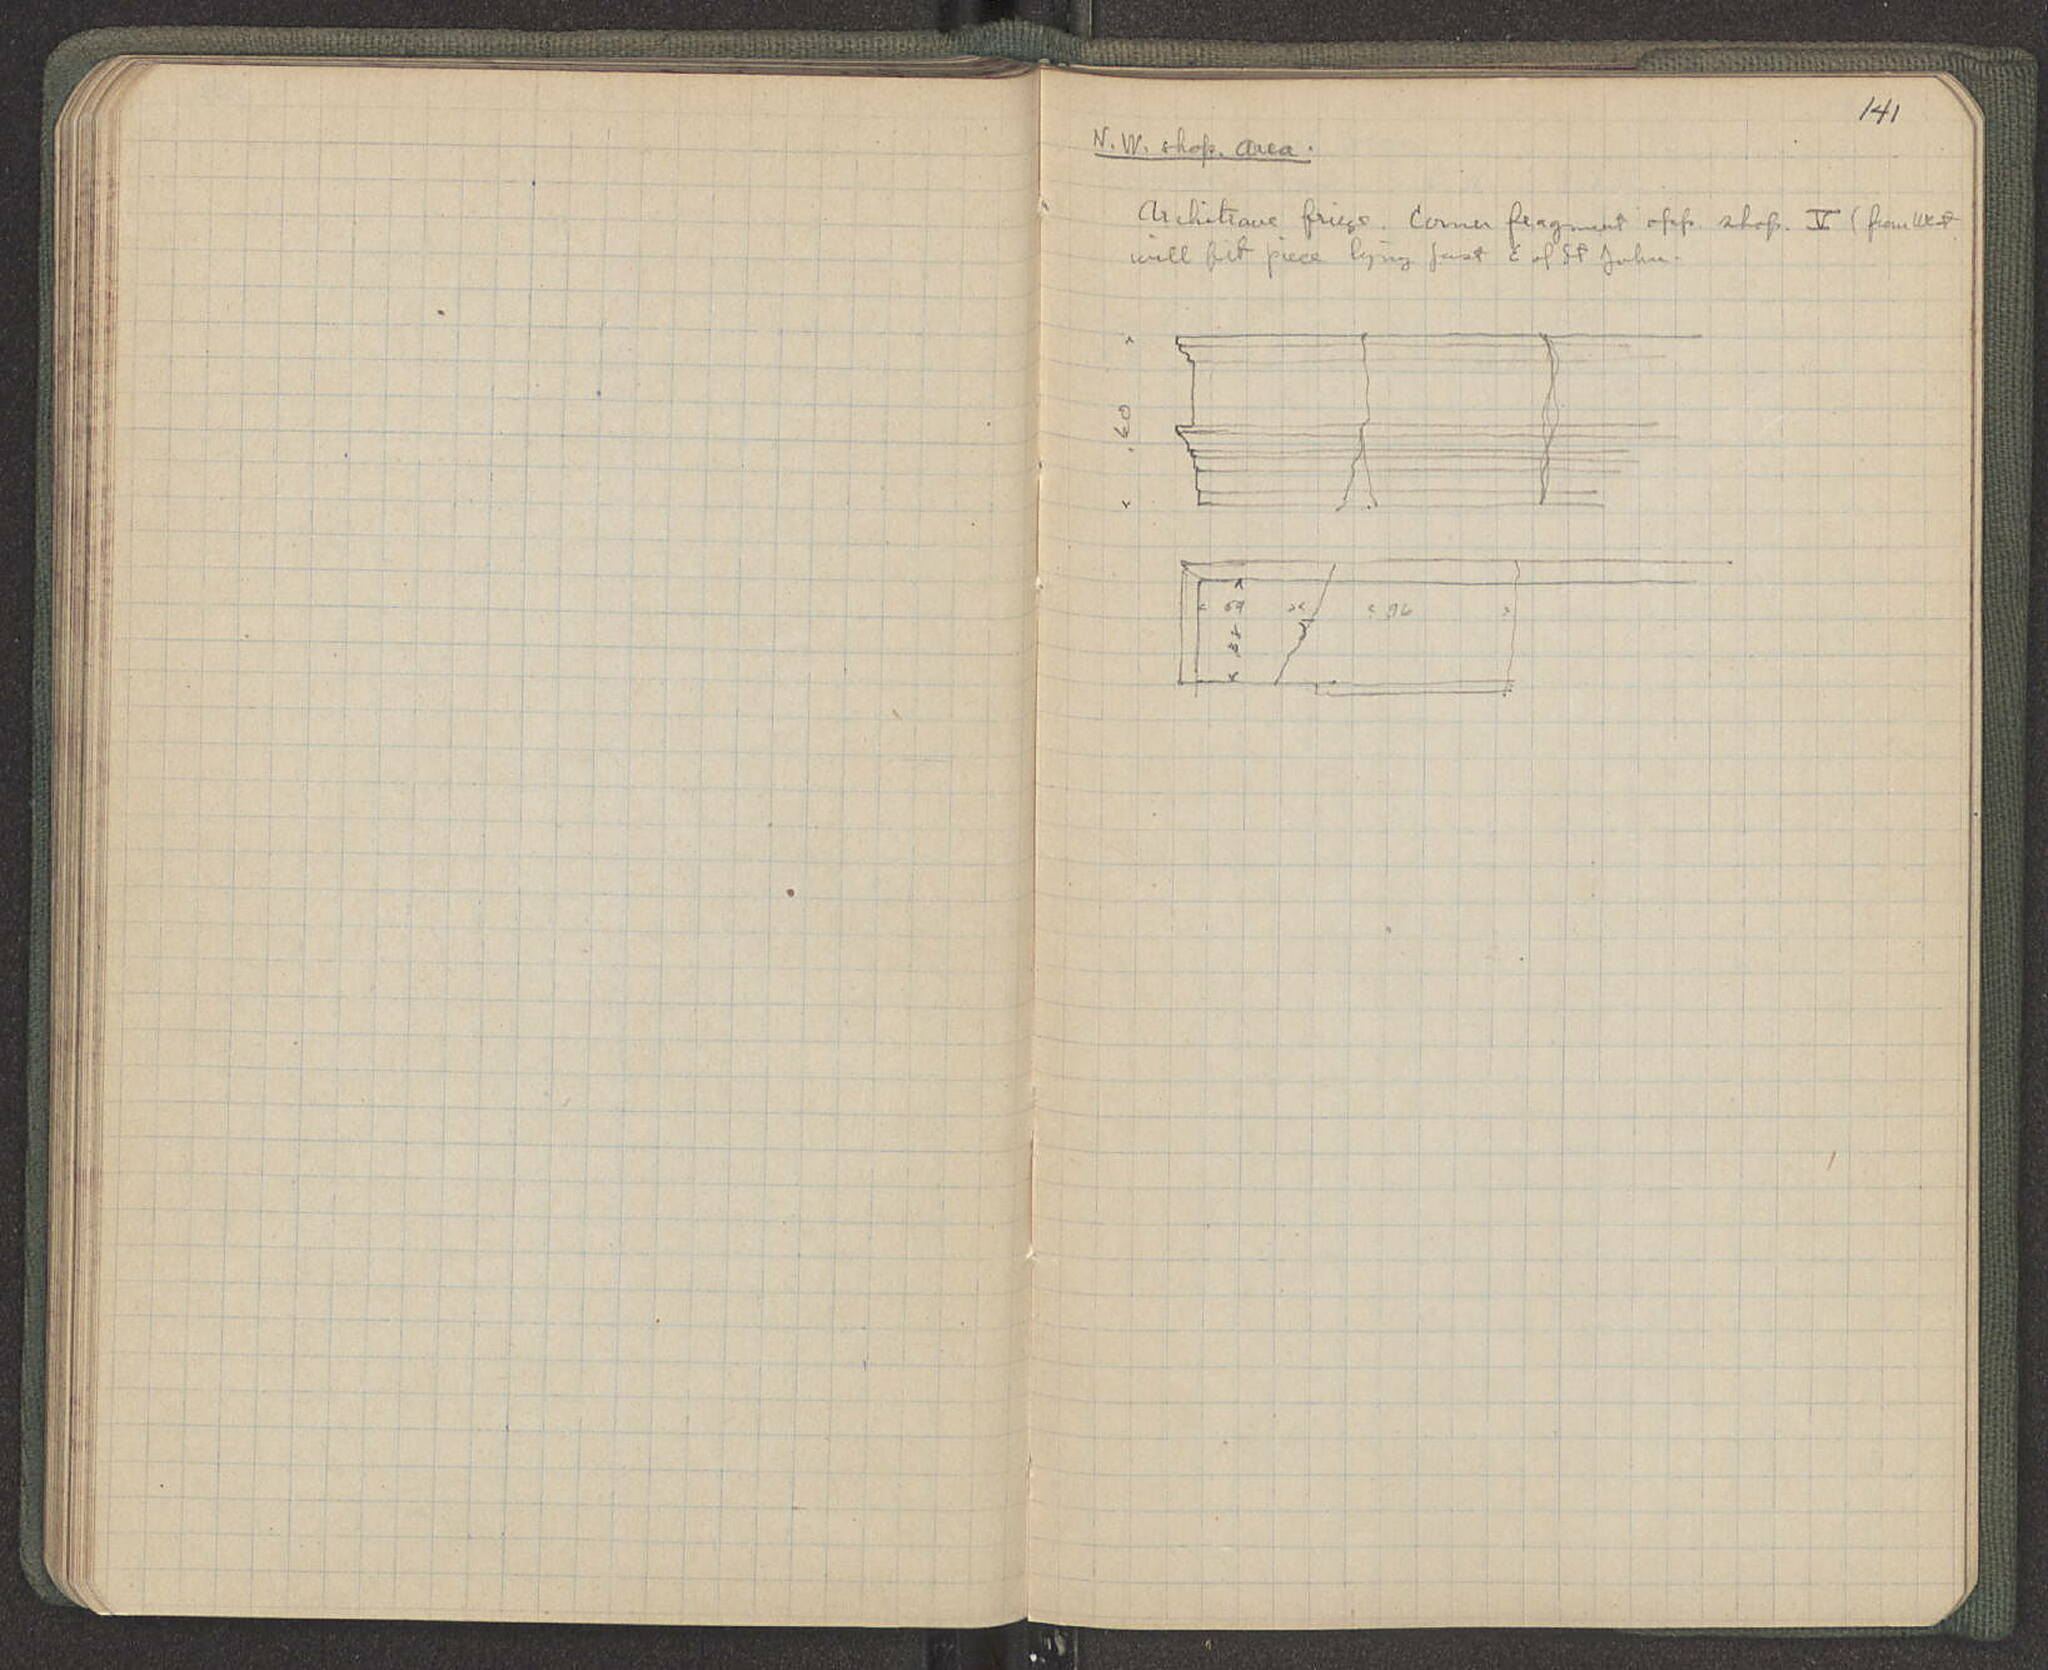 141
N. W. shop. area.
Architrave frieze. Corner fragment opp. shop. V (from West
will fit piece lying just E of St John.
.60
.59 .96